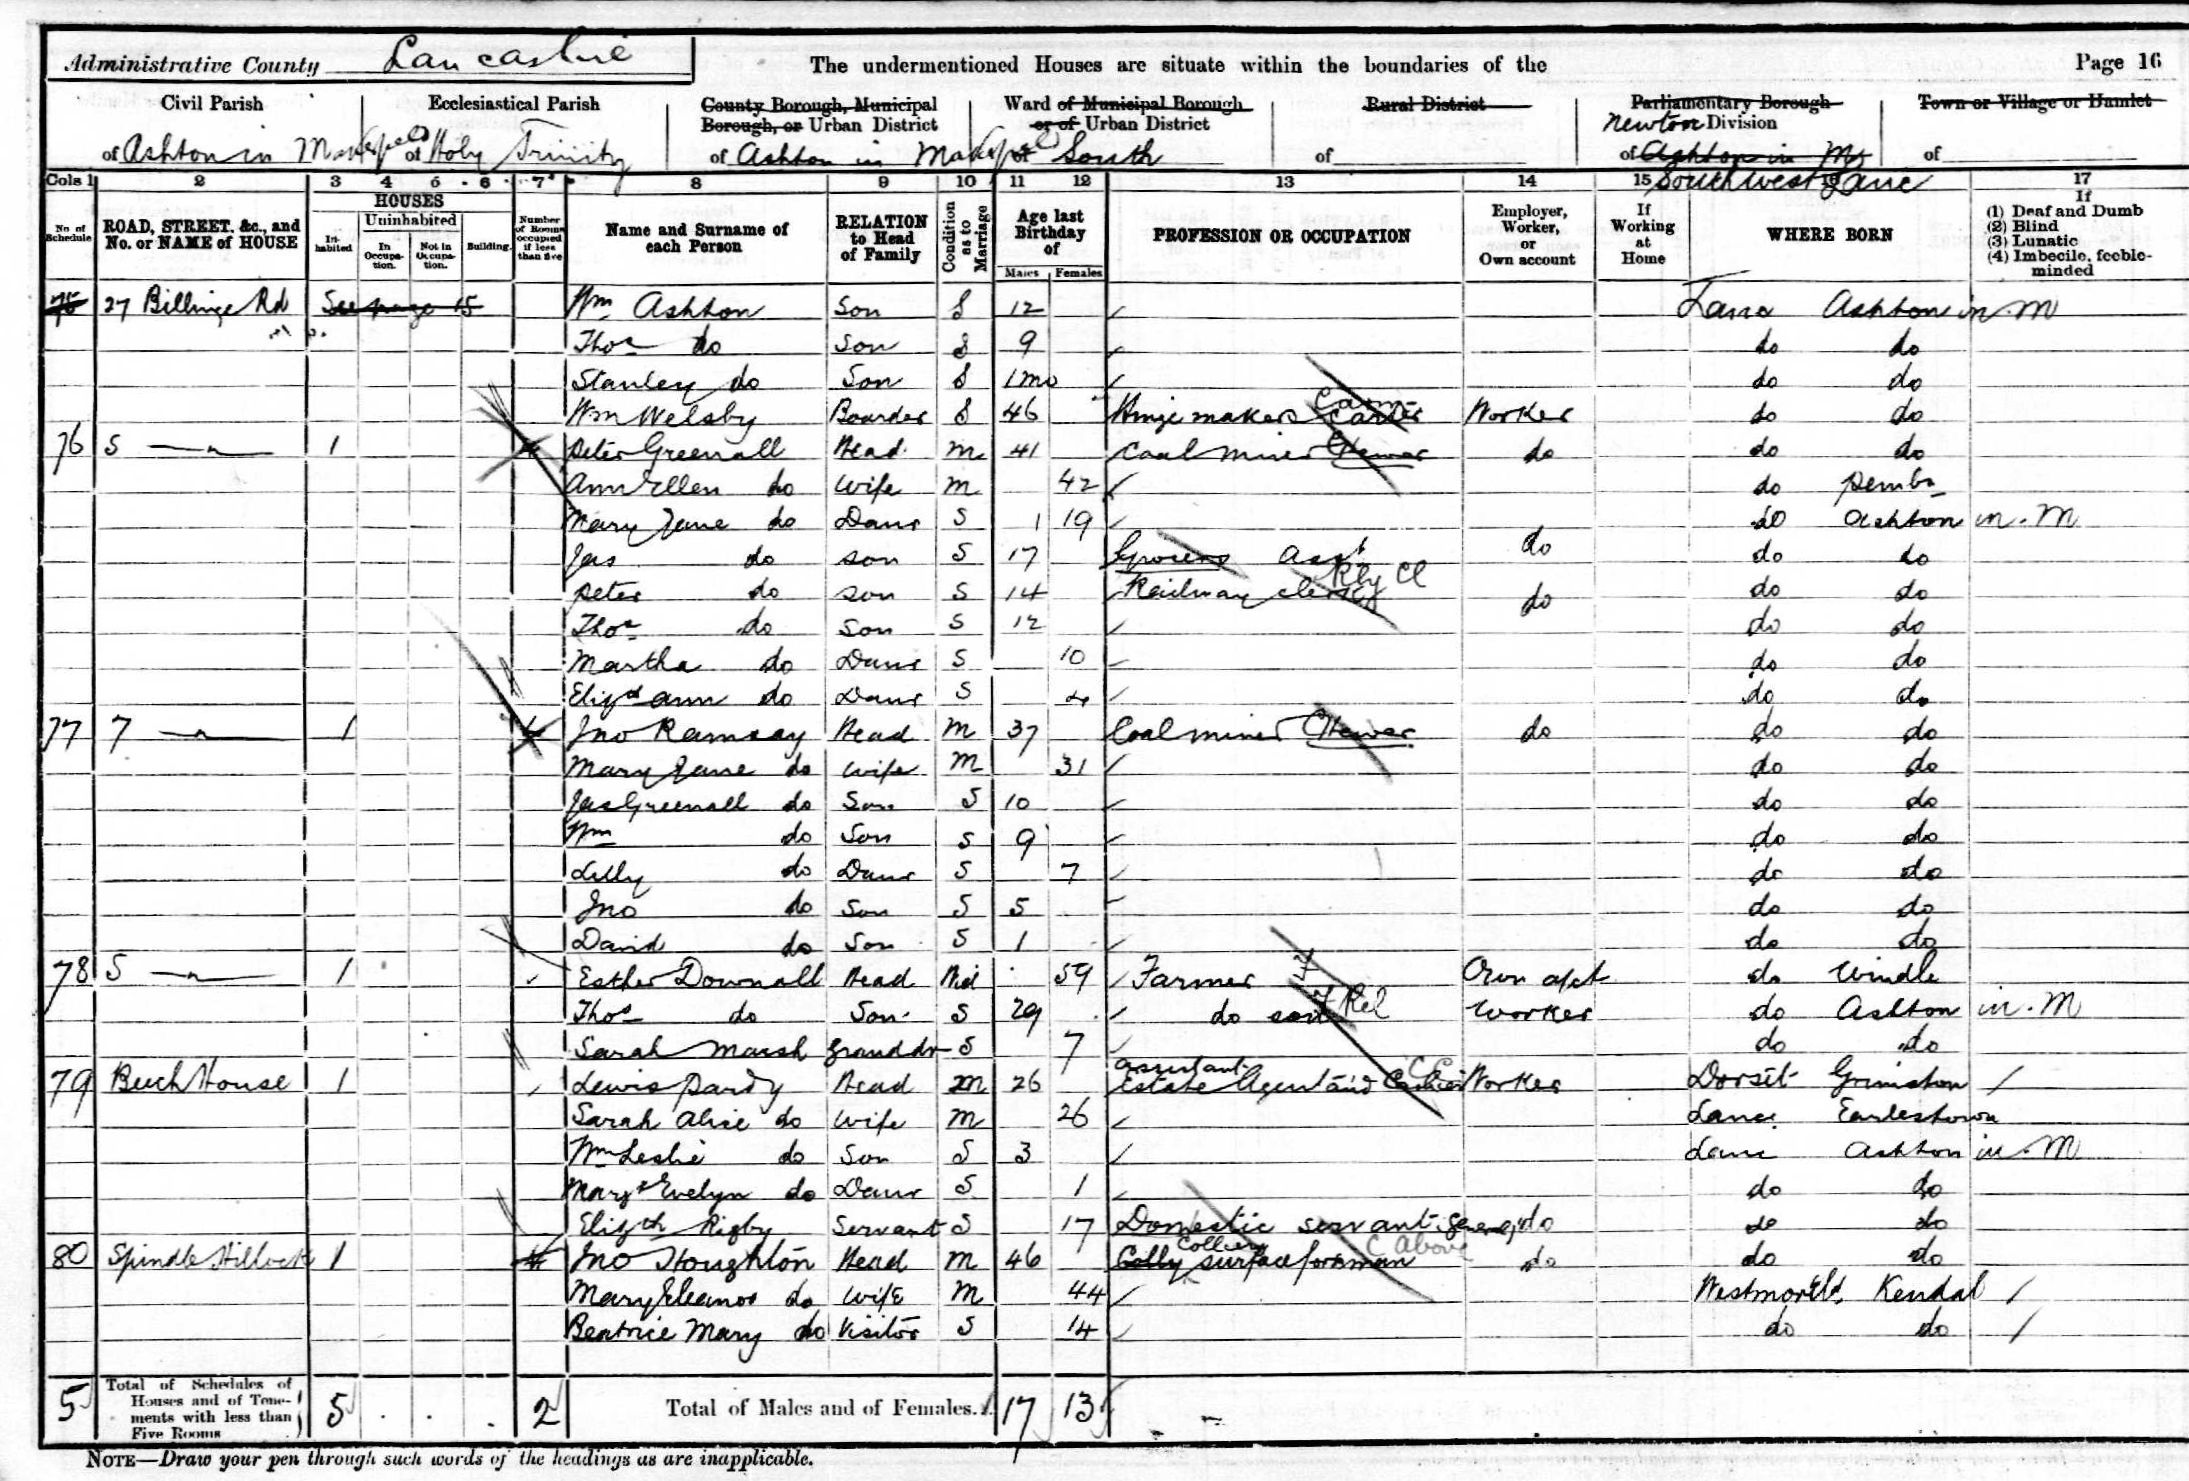 Administrative County Lancashire The undermentioned Houses are situate within the boundaries of the Page 16
Civil Parish Ecclesiastical Parish County Borough, Municipal Borough, or Urban District Ward of Municipal Borough or of Urban District Rural District Parliamentary Borough Newton Division Town or Village or Hamlet
of Ashton in Makerfield of Holy Trinity of Ashton in Makerfield of South of of Ashton in M of
Southwest Lanc
Cols 1 2 3 4 5 6 7 8 9 10 11 12 13 14 15 16 17
No. of Schedule ROAD, STREET, &c., and No. or NAME of HOUSE HOUSES In-habited Uninhabited In Occupa-tion. Not in Occupa-tion. Building. Number of Rooms occupied if less than five Name and Surname of each Person RELATION to Head of Family Condition as to Marriage Age last Birthday of Males Females PROFESSION OR OCCUPATION Employer, Worker, or Own account If Working at Home WHERE BORN If (1) Deaf and Dumb (2) Blind (3) Lunatic (4) Imbecile, feeble-minded
75 27 Billinge Rd See page 15 Wm Ashton Son S 12 Lanc Ashton in M
Thos do Son S 9 do do
Stanley do Son S 1 mo do do
Wm Welsby Boarder S 46 Hinge maker Worker do do
76 5 —"— 1 4 Peter Greenall Head M 41 Coal miner Hewer do do do
Ann Ellen do Wife M 42 do Pemb
Mary Jane do Daur S 19 do Ashton in M
Jas do Son S 17 Grocers Asst do do do
Peter do Son S 14 Railway clerk Rly Cl do do do
Thos do Son S 12 do do
Martha do Daur S 10 do do
Elizth Ann do Daur S 4 do do
77 7 —"— 1 4 Jno Ramsay Head M 37 Coal miner Hewer do do do
Mary Jane do Wife M 31 do do
Jas Greenall do Son S 10 do do
Wm do Son S 9 do do
Lilly do Daur S 7 do do
Jno do Son S 5 do do
David do Son S 1 do do
78 5 —"— 1 Esther Downall Head Wid 59 Farmer Own a/ct do Windle
Thos do Son S 29 do son Rel Worker do Ashton in M
Sarah Marsh Granddr S 7 do do
79 Beech House 1 Lewis Pardy Head M 26 assistant Estate Agent and Cashier Worker Dorset Grimston
Sarah Alice do Wife M 26 Lanc Earlestown
Wm Leslie do Son S 3 Lanc Ashton in M
Mary Evelyn do Daur S 1 do do
Elizth Rigby Servant S 17 Domestic servant General do do do
80 Spindle Hillock 1 4 Jno Houghton Head M 46 Colliery surface foreman C Above do do do
Mary Eleanor do Wife M 44 Westmorld Kendal
Beatrice Mary do Visitor S 14 do do
5 Total of Schedules of Houses and of Tene-ments with less than Five Rooms 5 2 Total of Males and of Females 17 13
NOTE—Draw your pen through such words of the headings as are inapplicable.